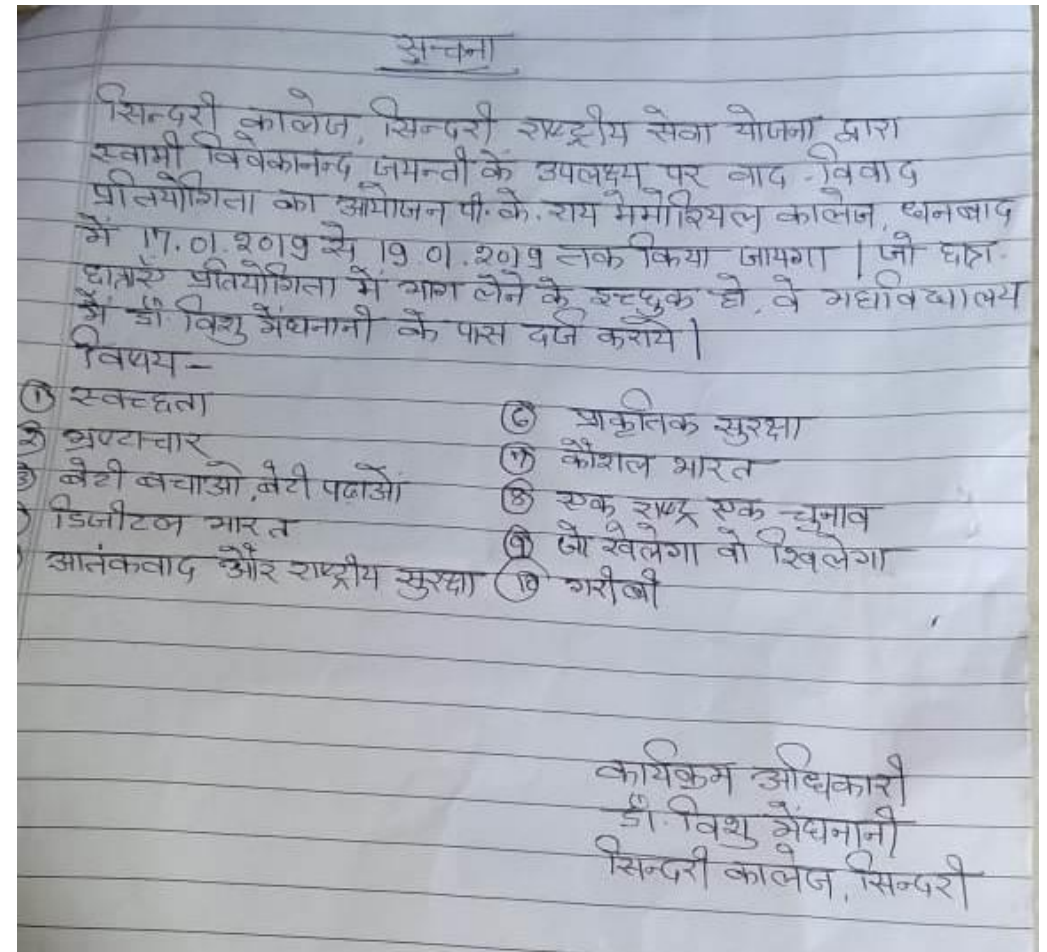 सूचना
सिन्दरी कालेज, सिन्दरी राष्ट्रीय सेवा योजना द्वारा
स्वामी विवेकानन्द जयन्ती के उपलक्ष्य पर वाद-विवाद
प्रतियोगिता का आयोजन पी. के. राय मेमोरियल कालेज, धनबाद
में 17.01.2019 से 19.01.2019 तक किया जायगा | जो छात्र-
छात्राएँ प्रतियोगिता में भाग लेने के इच्छुक हो, वे महाविद्यालय
में डॉ. विशु मेंघनानी के पास दर्ज कराये |
विषय –
① स्वच्छता
② भ्रष्टाचार
③ बेटी बचाओ, बेटी पढाओं
डिजीटल भारत
आतंकवाद और राष्ट्रीय सुरक्षा
⑥ प्राकृतिक सुरक्षा
⑦ कौशल भारत
⑧ एक राष्ट्र एक चुनाव
⑨ जो खेलेगा वो खिलेगा
⑩ गरीबी
कार्यक्रम अधिकारी
डॉ. विशु मेंघनानी
सिन्दरी कालेज, सिन्दरी